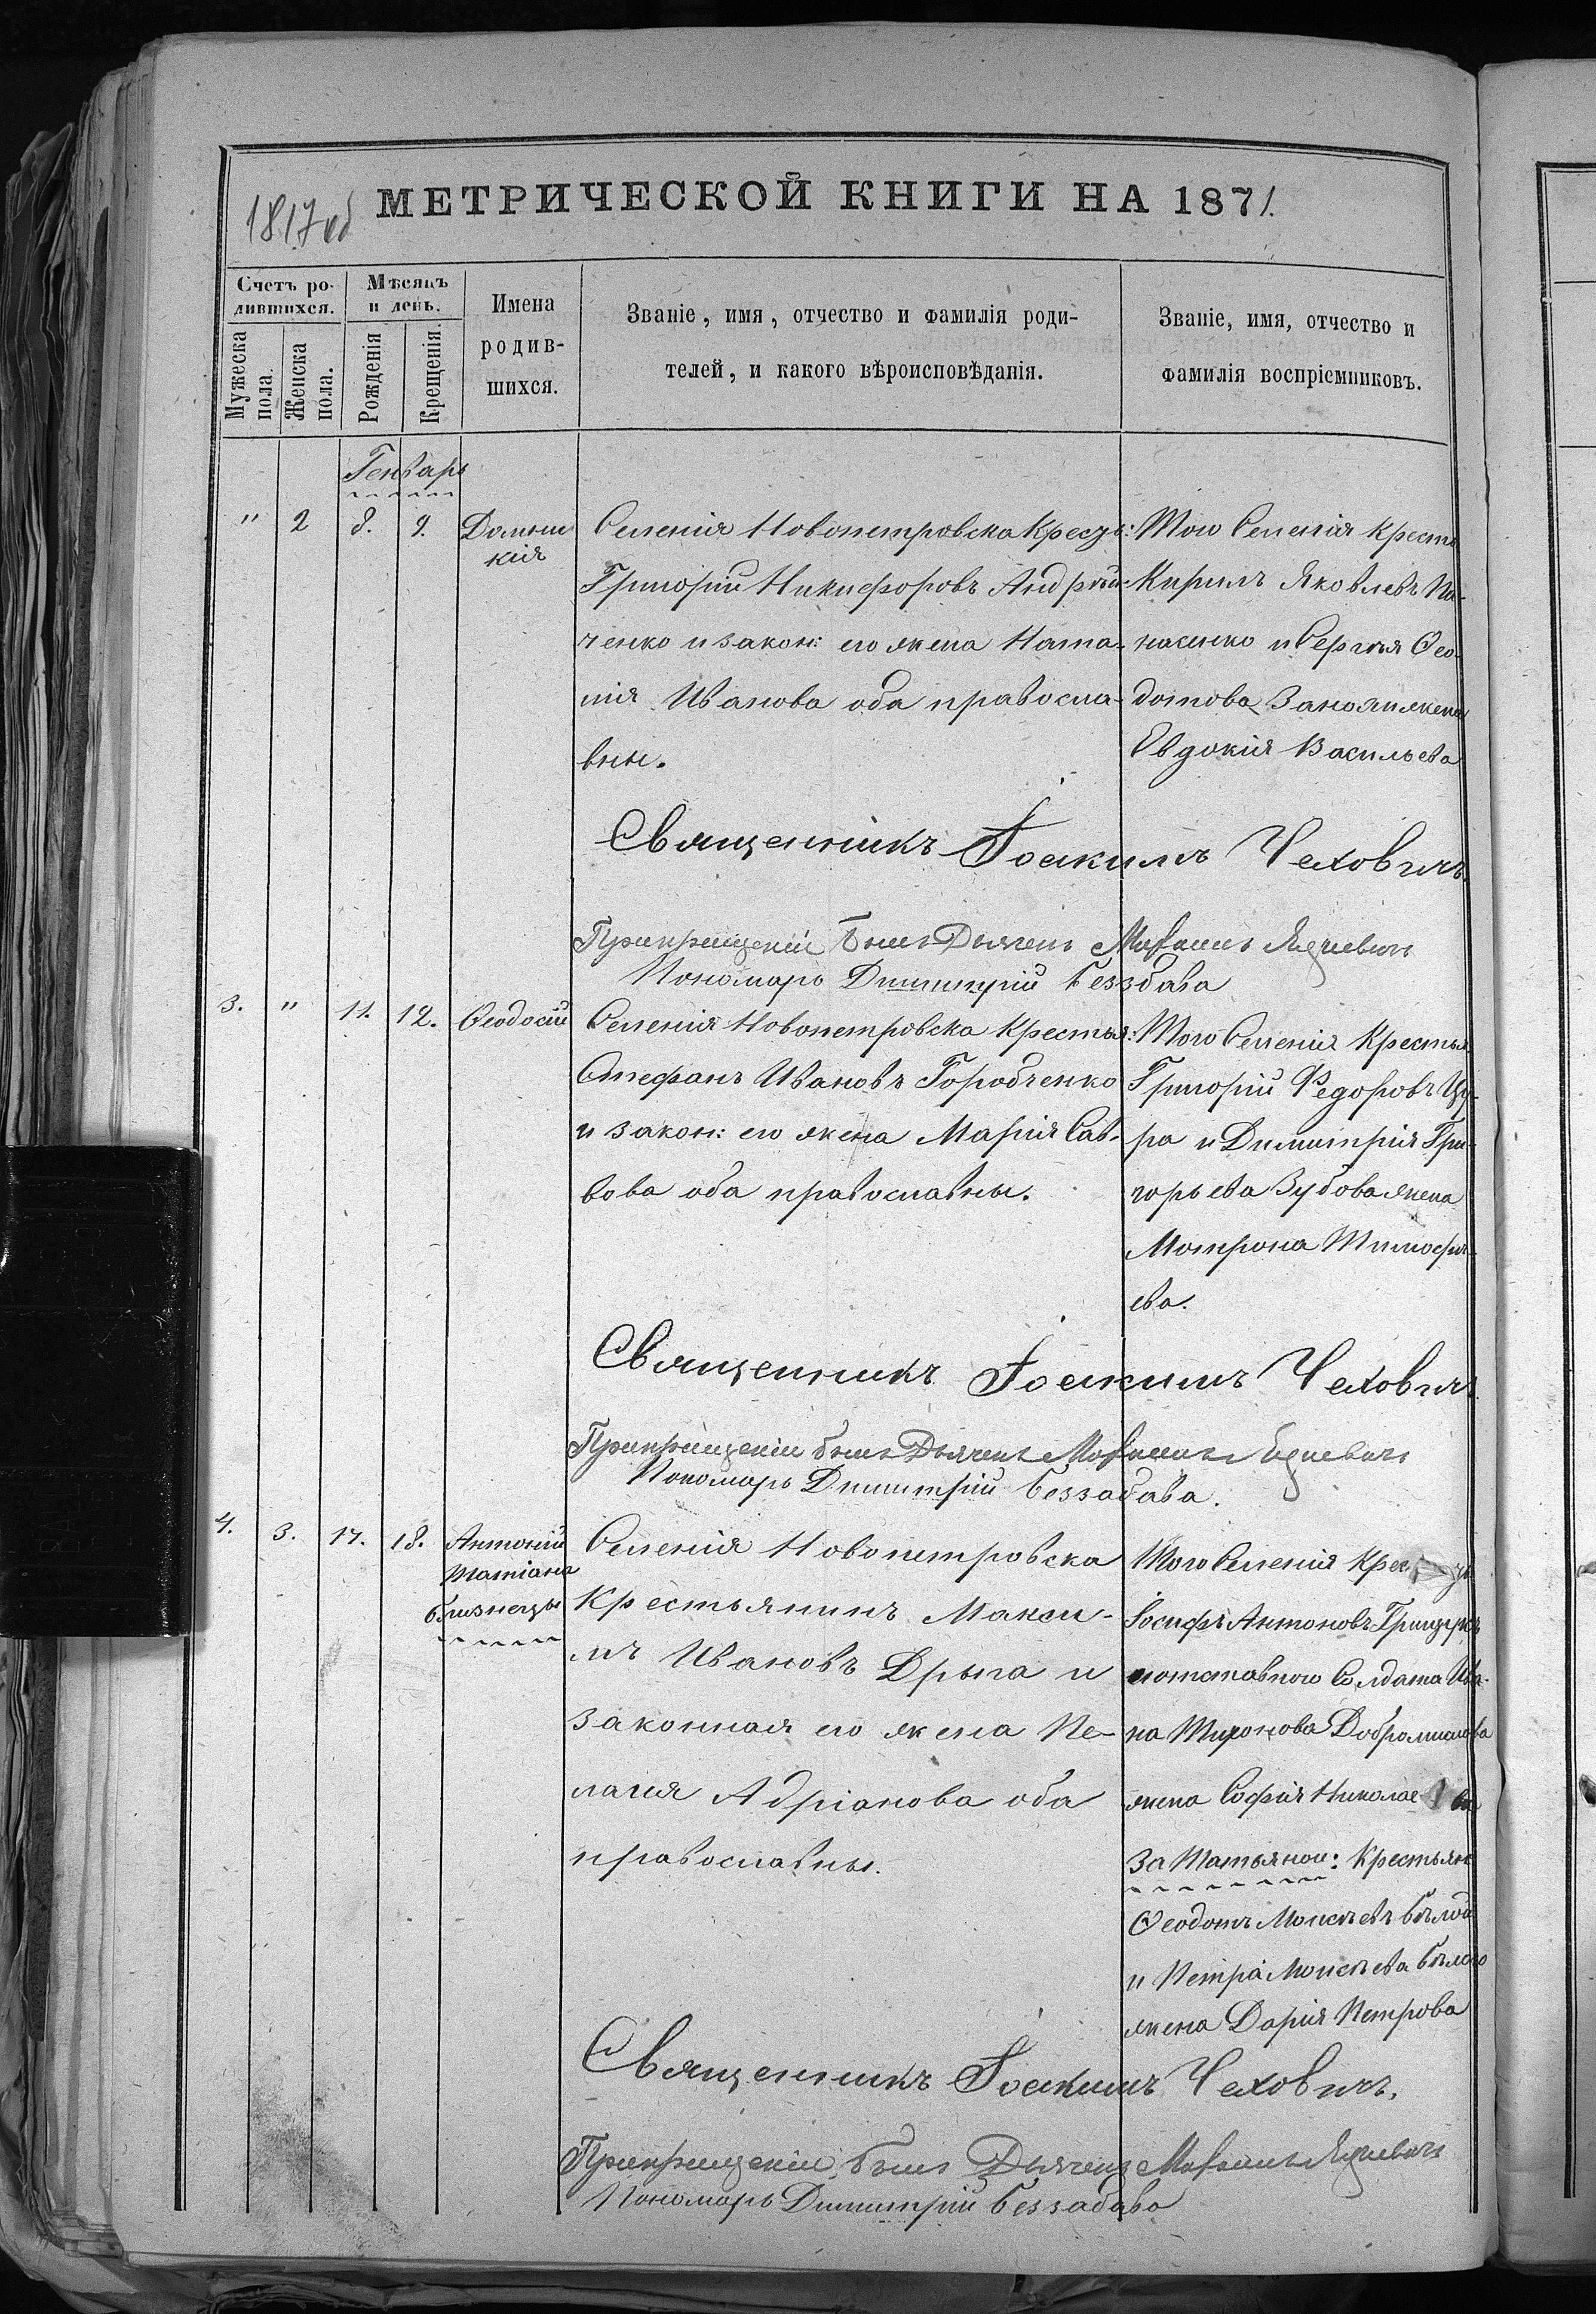 1817 об
МЕТРИЧЕСКОЙ КНИГИ НА 1871.
Счетъ ро-
дившихся.
Мѣсяцъ
и день.
Мужеска
пола.
Женска
пола.
Рожденія
Крещенія.
Имена
родив-
шихся.
Званіе, имя, отчество и фамилія роди-
телей, и какого вѣроисповѣданія.
Званіе, имя, отчество и
фамилія воспріемниковъ.
Генварь
" 2 8. 9.
Домни
кія
Селенія Новопетровска Крест:
Григорій Никифоровъ Андрій
ченко и закон: его жена Ната-
лія Иванова оба правосла-
вны.
Того Селенія Крестъ
Кирилъ Яковлевъ Па-
насенко и Сергѣя Ѳео-
дотова жена
Евдокія Васильева
Священникъ Іоакимъ Чеховичъ.
При крещеніи былъ Дьячекъ
Пономарь Димитрій Беззабава
3. " 11. 12. Ѳеодосій
Селенія Новопетровска Крестья:
Стефанъ Ивановъ Горобченко
и закон: его жена Марія Сав-
вова оба православны.
Того Селенія Крестья
Григорій Федоровъ Цу-
ра и Димитрія Гри-
горьева Зубова жена
Мотрона Тимофѣ-
ева.
Священникъ Іоакимъ Чеховичъ.
При крещеніи былъ Дьячекъ
Пономарь Димитрій Беззабава.
4. 3. 17. 18.
Антоній
Татіана
близнецы
Селенія Новопетровска
Крестьянинъ Макси-
мъ Ивановъ Дрыга и
законная его жена Пе-
лагія Адріанова оба
православны.
Того Селенія Крес
Іосифъ Антоновъ
и отставного Солдата Ива-
на жена Софія Николаева
За Татьяной: Крестьян
Ѳеодотъ Моисѣевъ
и Петра Моисѣева
жена Дарія Петрова
Священникъ Іоакимъ Чеховичъ.
При крещеніи былъ Дьячекъ
Пономарь Димитрій Беззабава